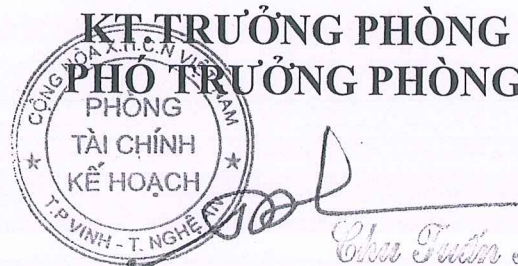 KT.TRƯỞNG PHÒNG
PHÓ TRƯỞNG PHÒNG
CỘNG HÒA X.H.C.N VIỆT NAM
PHÒNG
TÀI CHÍNH
KẾ HOẠCH
T.P VINH - T. NGHỆ AN
Chu Tuấn